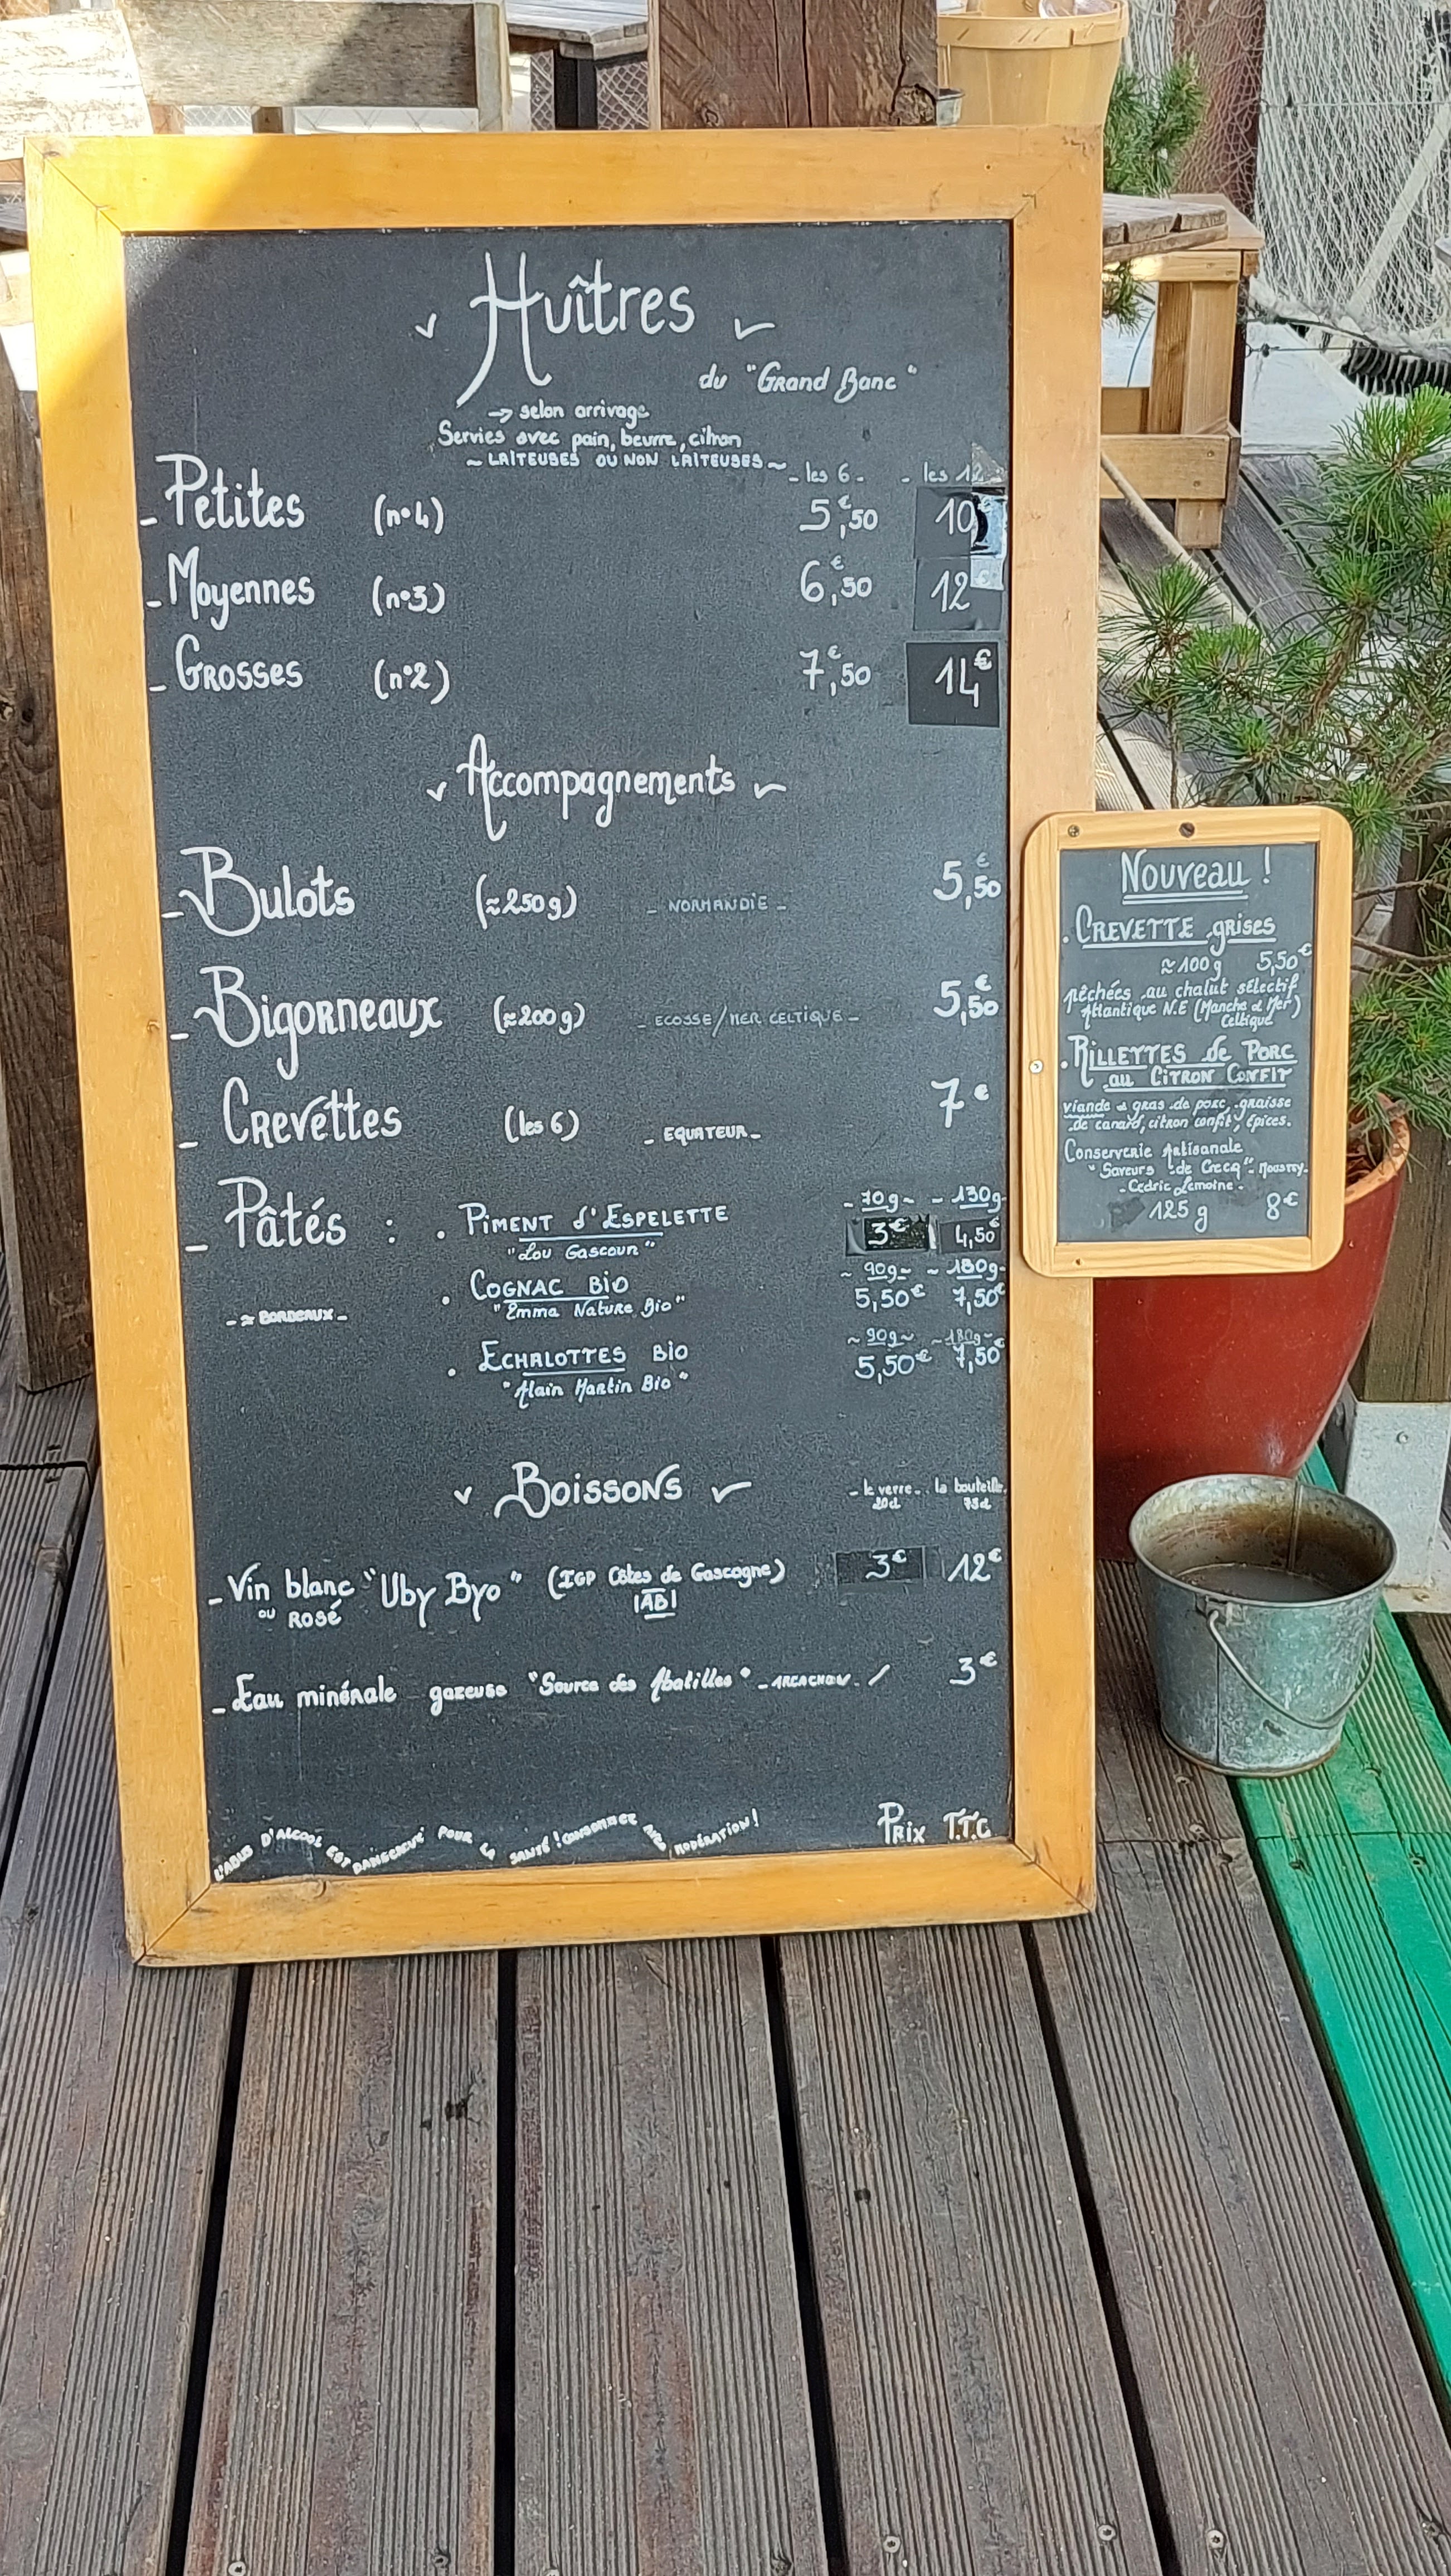 Huîtres
du "Grand Banc"
→ selon arrivage
Servies avec pain, beurre, citron
~ LAITEUSES OU NON LAITEUSES ~
- les 6 - - les 12
- Petites (n°4) 5€,50 10
- Moyennes (n°3) 6€,50 12€
- Grosses (n°2) 7€,50 14€
Accompagnements
- Bulots (≈250g) - NORMANDIE - 5€,50
- Bigorneaux (≈200g) - ECOSSE/MER CELTIQUE - 5€,50
- Crevettes (les 6) - EQUATEUR - 7€
- 70g - - 130g -
- Pâtés : . PIMENT d'ESPELETTE 3€ 4,50€
"Lou Gascoun"
~ 90g - ~ 180g -
. COGNAC BIO 5,50€ 7,50€
- ≈ BORDEAUX - "Emma Nature Bio"
~ 90g ~ - 180g -
. ECHALOTTES BIO 5,50€ 7,50€
"Alain Martin Bio"
Boissons - le verre - la bouteille
20cl 75cl
- Vin blanc "Uby Byo" (IGP Côtes de Gascogne) 3€ 12€
ou ROSÉ |AB|
- Eau minérale gazeuse "Source des Abatilles" - ARCACHON - / 3€
L'ABUS D'ALCOOL EST DANGEREUX POUR LA SANTÉ ! CONSOMMEZ AVEC MODÉRATION !
PRIX T.T.C
Nouveau !
. CREVETTE grises
≈100g 5,50€
pêchées au chalut sélectif
Atlantique N.E (Manche & Mer
Celtique)
. RILLETTES de PORC
au CITRON CONFIT
viande & gras de porc, graisse
de canard, citron confit, épices.
Conserverie Artisanale
"Saveurs de Crecq" - Moustey -
- Cedric Lemoine -
125g 8€